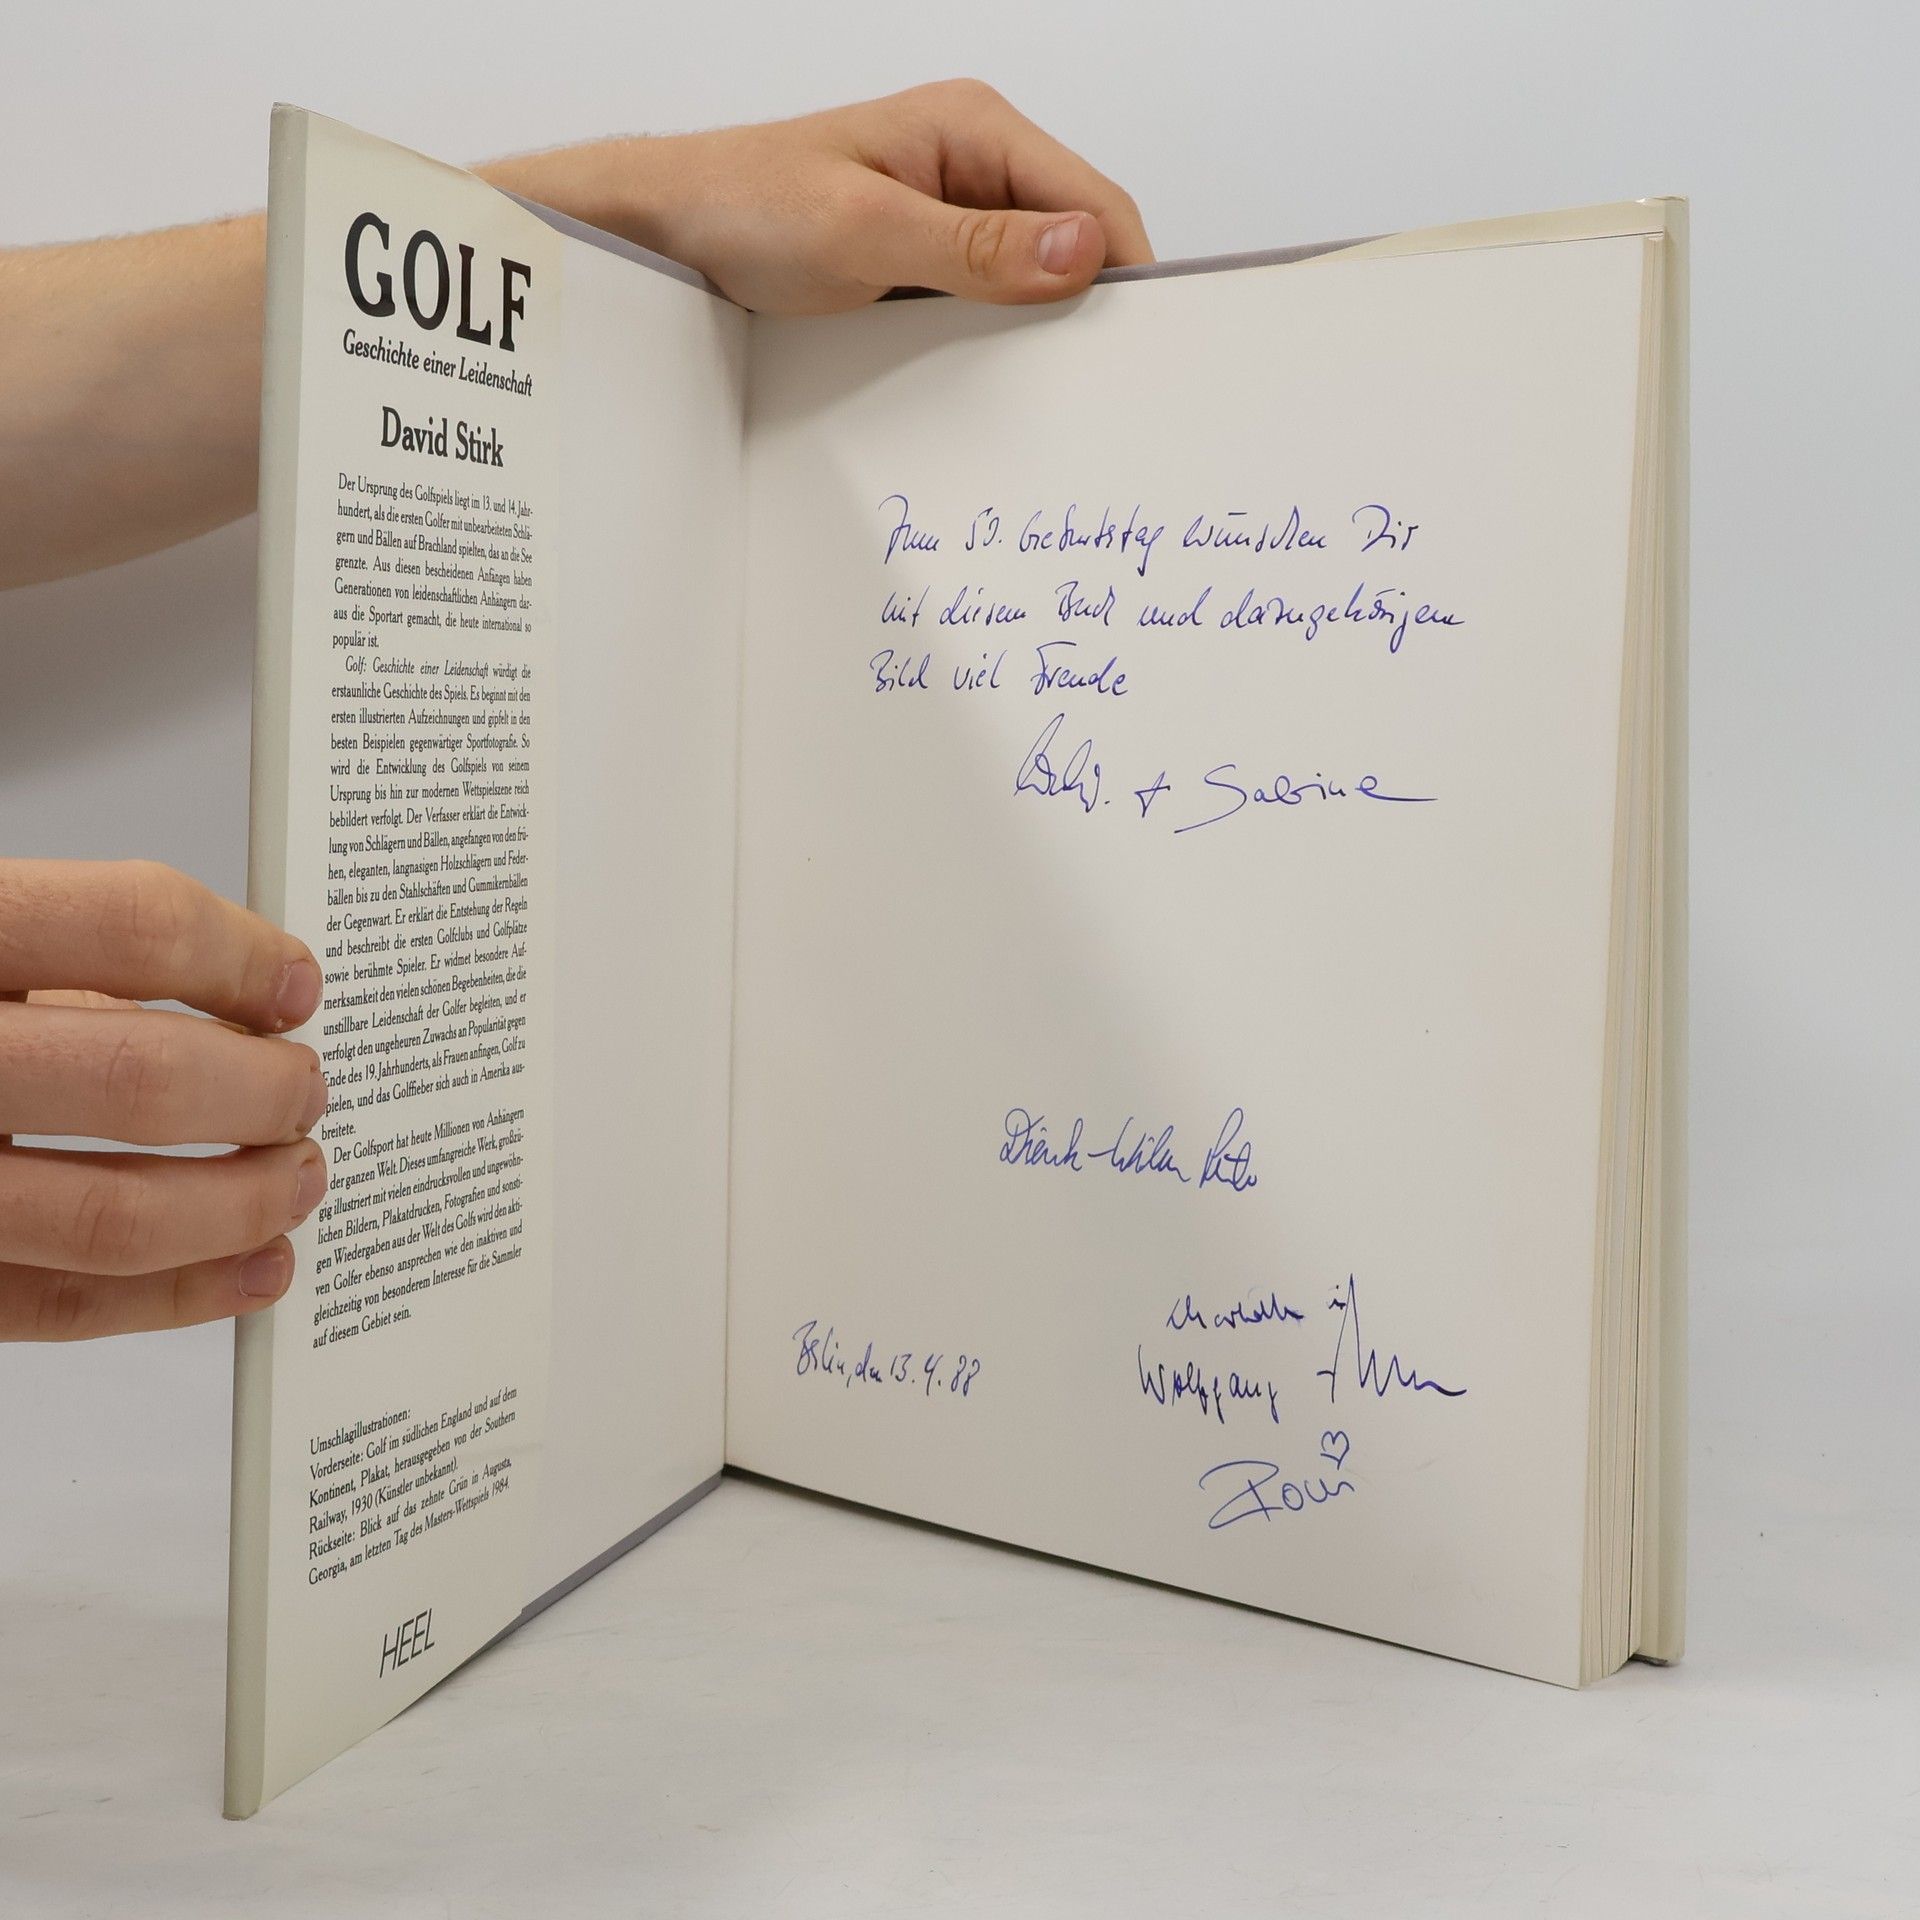 GOLF
Geschichte einer Leidenschaft
David Stirk
Der Ursprung des Golfspiels liegt im 13. und 14. Jahr-
hundert, als die ersten Golfer mit unbearbeiteten Schlä-
gern und Bällen auf Brachland spielten, das an die See
grenzte. Aus diesen bescheidenen Anfängen haben
Generationen von leidenschaftlichen Anhängern dar-
aus die Sportart gemacht, die heute international so
populär ist.
Golf: Geschichte einer Leidenschaft würdigt die
erstaunliche Geschichte des Spiels. Es beginnt mit den
ersten illustrierten Aufzeichnungen und gipfelt in den
besten Beispielen gegenwärtiger Sportfotografie. So
wird die Entwicklung des Golfspiels von seinem
Ursprung bis hin zur modernen Wettspielszene reich
bebildert verfolgt. Der Verfasser erklärt die Entwick-
lung von Schlägern und Bällen, angefangen von den frü-
hen, eleganten, langnasigen Holzschlägern und Feder-
bällen bis zu den Stahlschäften und Gummikernbällen
der Gegenwart. Er erklärt die Entstehung der Regeln
und beschreibt die ersten Golfclubs und Golfplätze
sowie berühmte Spieler. Er widmet besondere Auf-
merksamkeit den vielen schönen Begebenheiten, die die
unstillbare Leidenschaft der Golfer begleiten, und er
verfolgt den ungeheuren Zuwachs an Popularität gegen
Ende des 19. Jahrhunderts, als Frauen anfingen, Golf zu
pielen, und das Golffieber sich auch in Amerika aus-
breitete.
Der Golfsport hat heute Millionen von Anhängern
der ganzen Welt. Dieses umfangreiche Werk, großzü-
gig illustriert mit vielen eindrucksvollen und ungewöhn-
lichen Bildern, Plakatdrucken, Fotografien und sonsti-
gen Wiedergaben aus der Welt des Golfs wird den akti-
ven Golfer ebenso ansprechen wie den inaktiven und
gleichzeitig von besonderem Interesse für die Sammler
auf diesem Gebiet sein.
Umschlagillustrationen:
Vorderseite: Golf im südlichen England und auf dem
Kontinent, Plakat, herausgegeben von der Southern
Railway, 1930 (Künstler unbekannt).
Rückseite: Blick auf das zehnte Grün in Augusta,
Georgia, am letzten Tag des Masters-Wettspiels 1984.
HEEL
Zum 50. Geburtstag wünschen Dir
mit diesem Buch und dazugehörigem
Bild viel Freude
+ Sabine
Berlin, den 13.4.88
Wolfgang